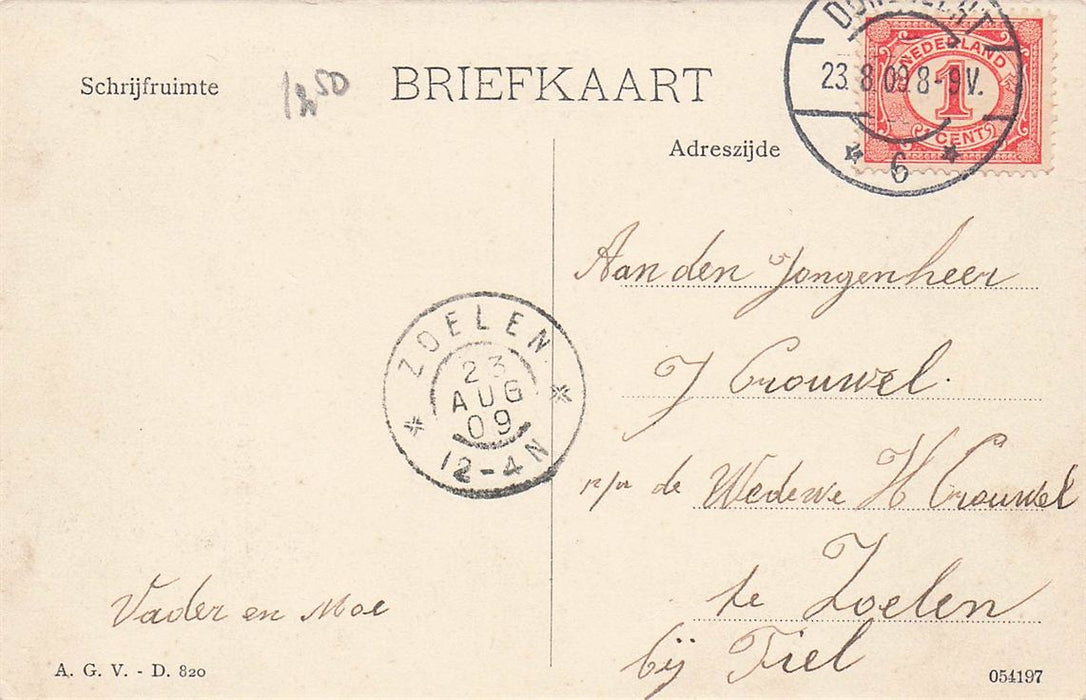 Schrijfruimte
1 50
BRIEFKAART
Adreszijde
DORDRECHT
23. 8 09. 8-9 V.
6
NEDERLAND
1
CENT
Aan den Jongenheer
J Crouwel.
p/a de Wedewe H Crouwel
te Zoelen
bij Tiel
ZOELEN
23
AUG
09
12-4N
Vader en Moe
A. G. V. - D. 820
054197